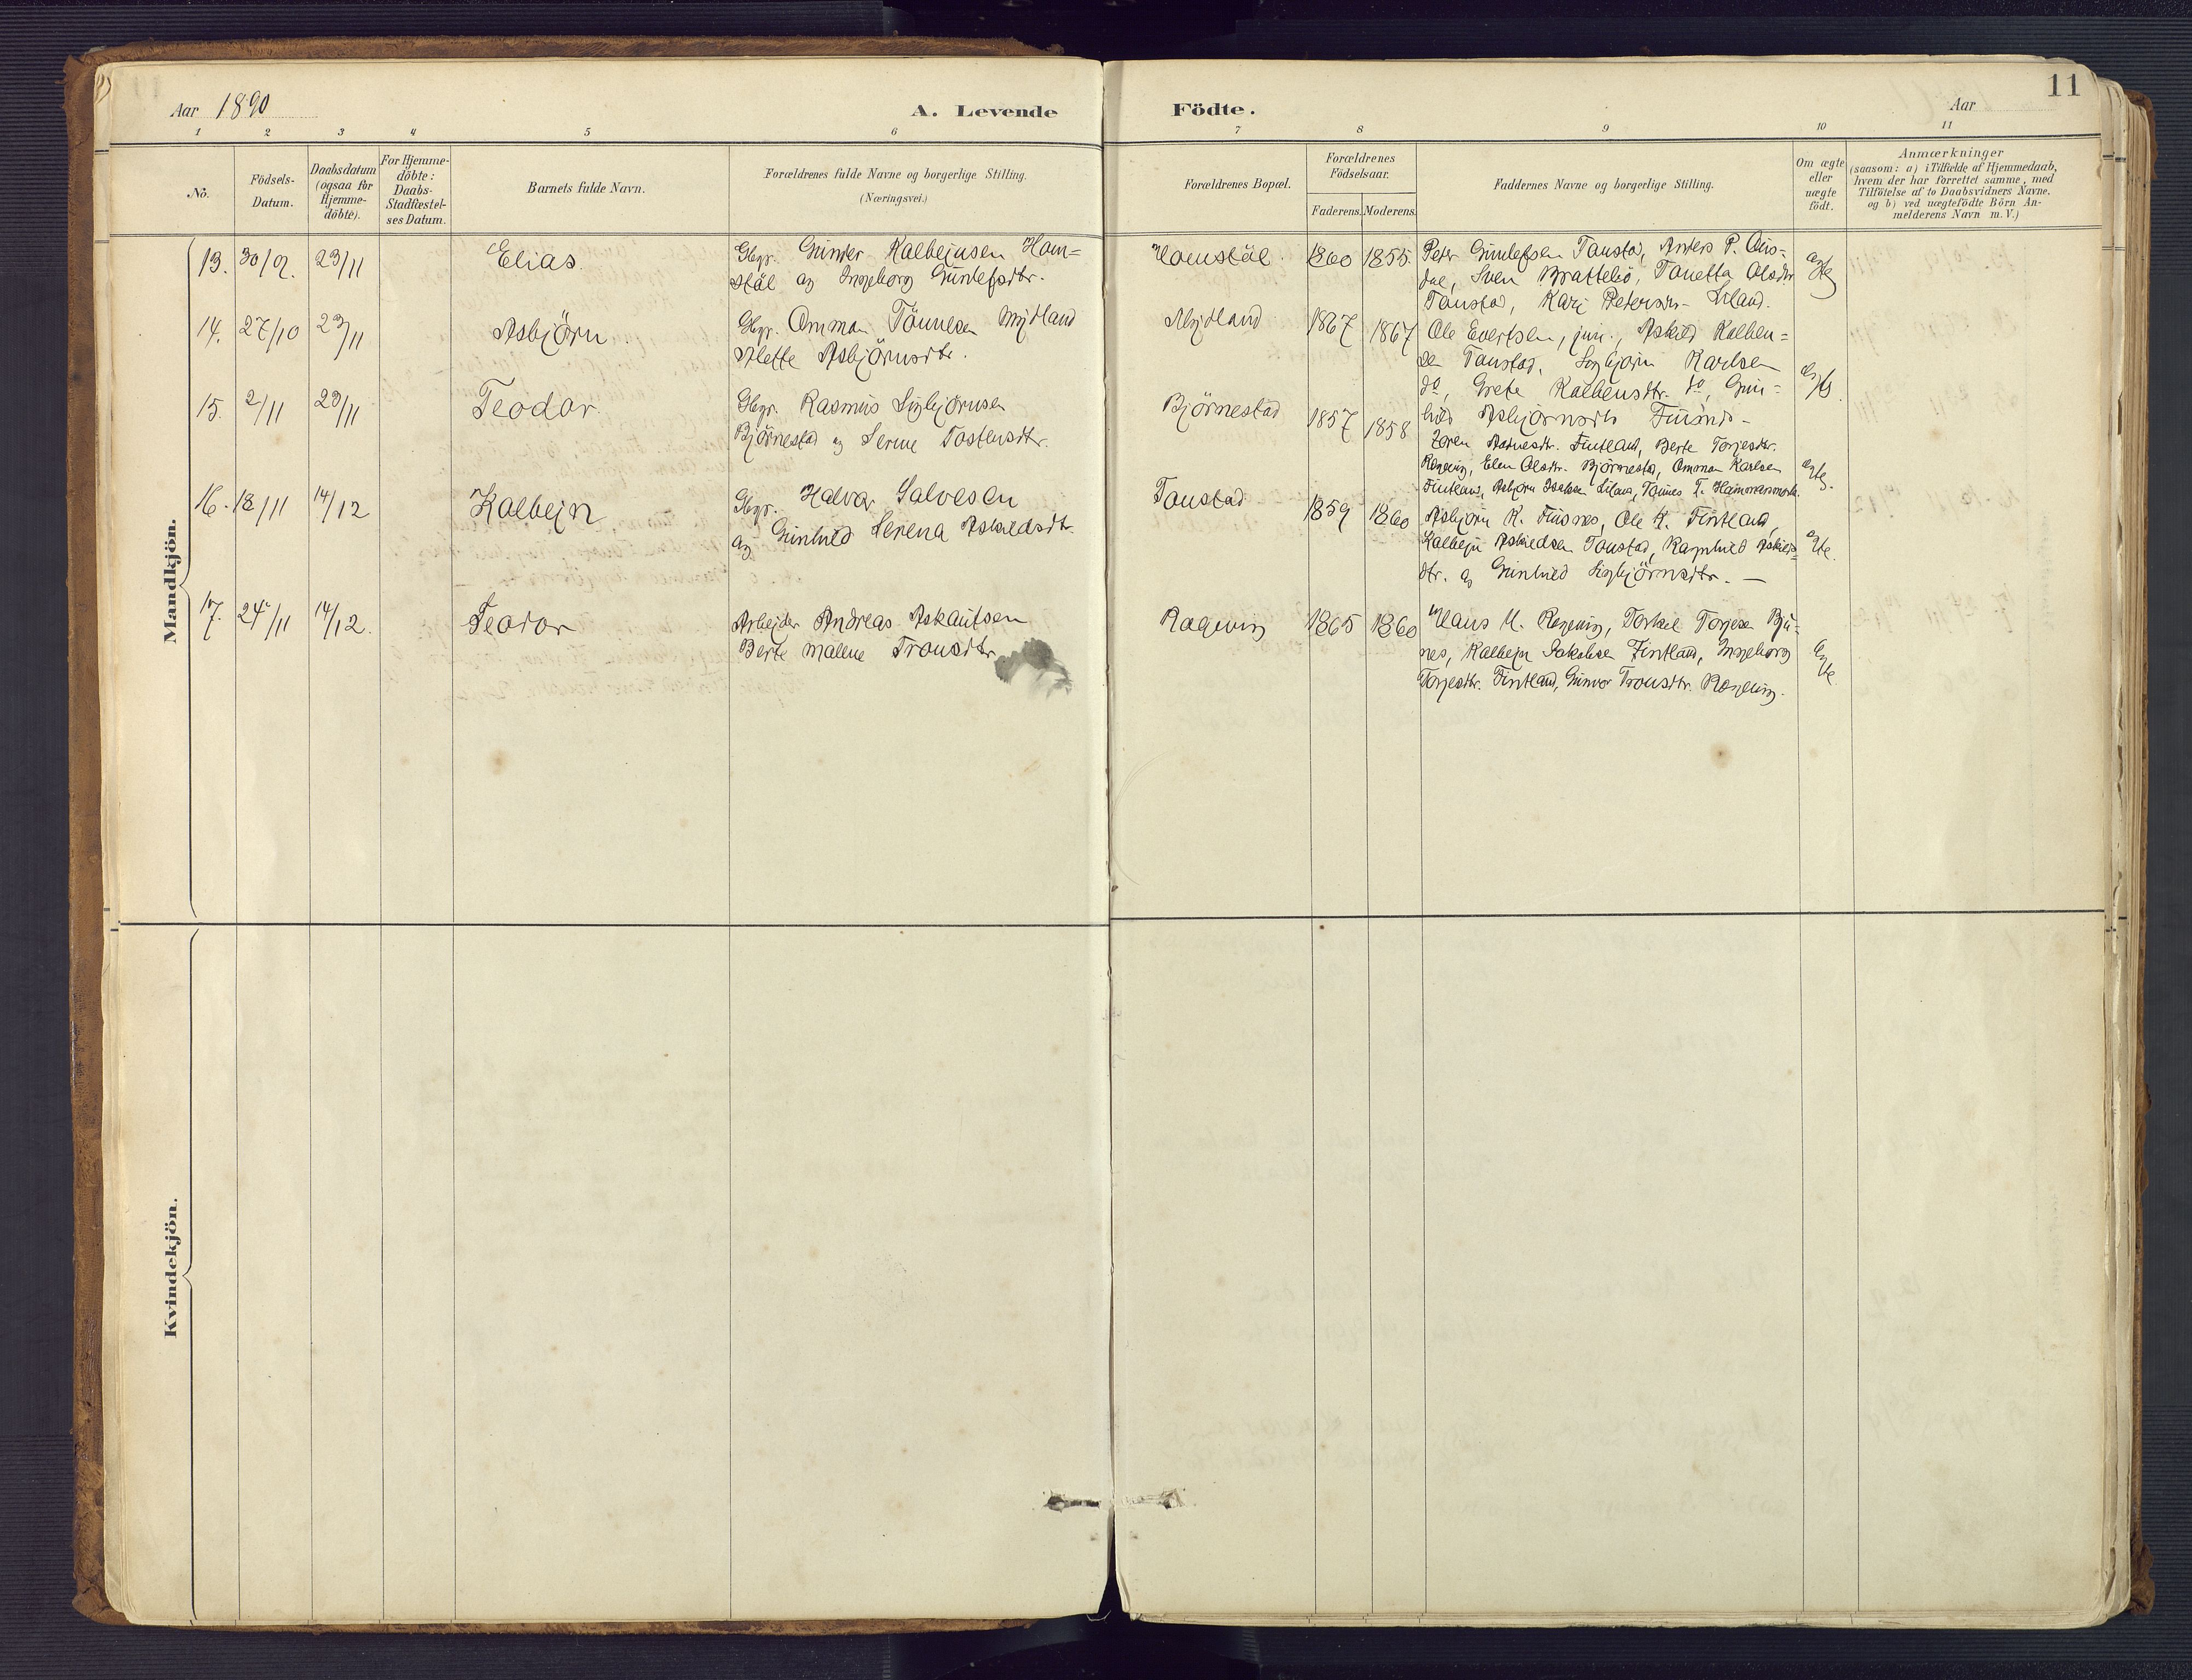 11
Aar 1890
A. Levende Födte.
Aar
1 2 3 4 5 6 7 8 9 10 11
No.
Födsels-Datum.
Daabsdatum (ogsaa for Hjemme-döbte).
For Hjemme-döbte: Daabs-Stadfæstel-ses Datum.
Barnets fulde Navn.
Forældrenes fulde Navne og borgerlige Stilling.
(Næringsvei.)
Forældrenes Bopæl.
Forældrenes Födselsaar.
Faderens. Moderens.
Faddernes Navne og borgerlige Stilling.
Om ægte eller uægte födt.
Anmærkninger
(saasom: a) i Tilfælde af Hjemmedaab,
hvem der har forrettet samme, med
Tilföielse af to Daabsvidners Navne,
og b) ved uægtefödte Börn An-
melderens Navn m. V.)
Mandkjön.
13. 30/9. 23/11 Elias. Gbgr. Gunder Kalbejnsen Hom=
stöl og Ingeborg Gunlefsdtr.
Homstöl. 1860 1855.
Peter Gunlefsen Tonstad, Anders P. Ous-
dal, Sven Brattebö, Tonetta Olsdtr
Tonstad, Kari Petersdtr Liland.
ægte
14. 27/10 23/11 Asbjörn Gbgr. Omman Tönnesen Mydland
Alette Asbjörnsdtr.
Mydland 1867 1867
Ole Evertsen, jun., Askild Kalben=
sen Tonstad, Sigbjörn Karlsen
do, Grete Kalbensdtr. do, Gun=
hild Asbjörnsdtr
ægte.
15. 2/11 23/11 Teodor. Gbgr. Rasmus Sigbjörnsen
Björnestad og Serine Tostensdtr.
Björnestad 1857 1858
Fintland, Berte Torjesdtr.
Rögeving, Elen Olsdtr. Björnestad, Omman Karlsen
Fintland, Asbjörn Liland, Tönnes T.
ægte.
16. 18/11 14/12 Kalbejn Gbgr. Halvor Salvesen
og Gunhild Serena Askildsdtr.
Tonstad 1859 1860
Asbjörn K. Ole K. Fintland,
Kalbejn Askildsen Tonstad, Ragnhild Askilds=
dtr. og Gunhild Sigbjörnsdtr. —
ægte.
17. 24/11 14/12. Teodor Arbejder Andreas
Berte Malene Tronsdtr
Rögeving 1865 1860
Klaus M. Rögeving, Torkel Torjesen Bju-
nes, Kalbejn Jakobsen Fintland, Ingeborg
Torjesdtr. Fintland, Gunvor Tronsdtr. Rögeving.
ægte.
Kvindekjön.